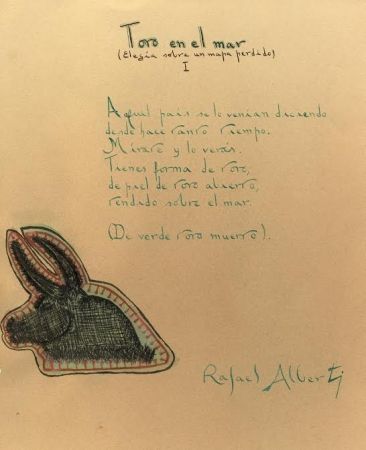 Toro en el mar
(Elegía sobre un mapa perdido)
I
A aquel país se lo venían diciendo
desde hace tanto tiempo.
Mírate y lo verás.
Tienes forma de toro,
de piel de toro abierto,
tendido sobre el mar.
(De verde toro muerto).
Rafael Alberti